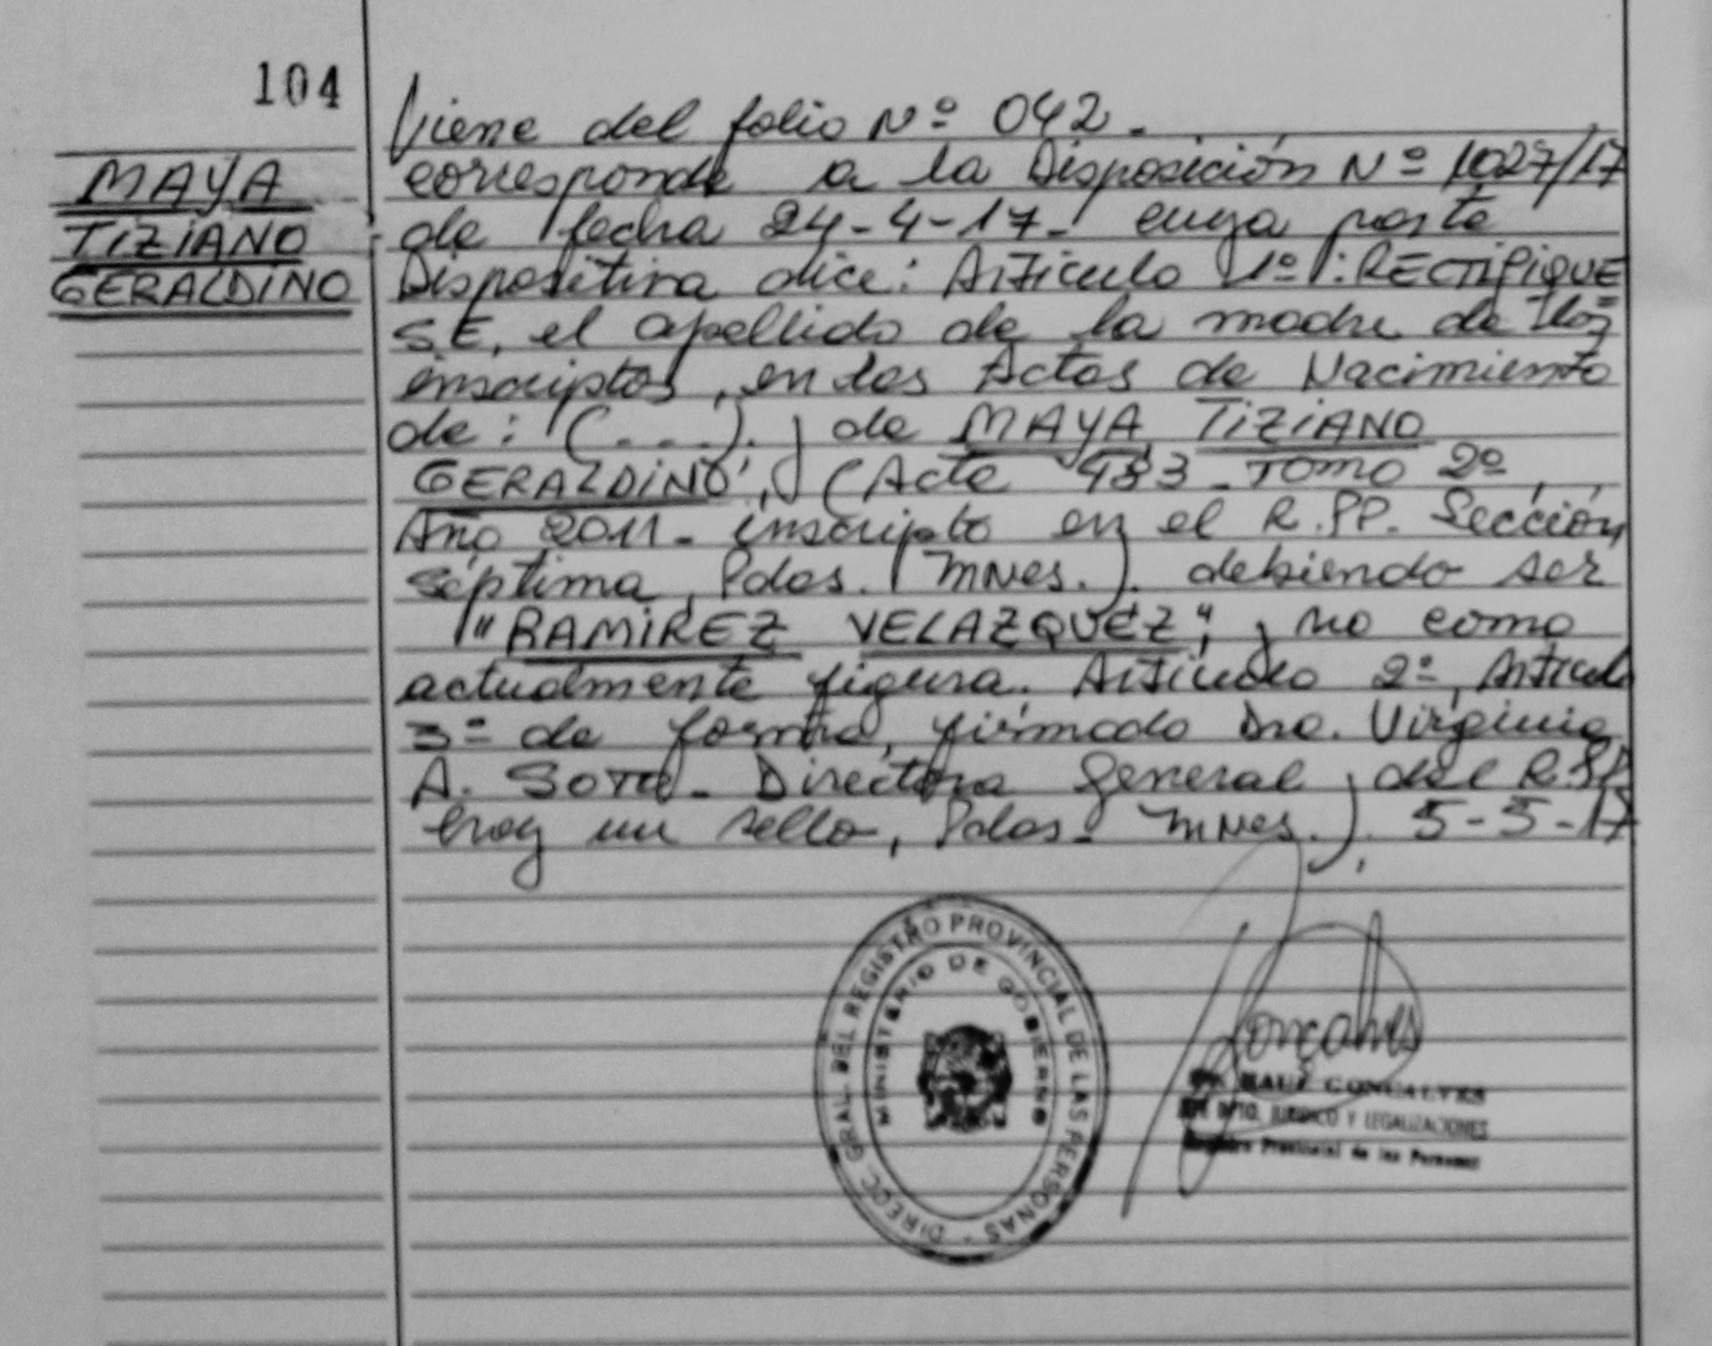 104
MAYA
TIZIANO
GERALDINO
Viene del folio Nº 042.
corresponde a la Disposición Nº 1027/17
de fecha 24-4-17- cuya parte
Dispositiva dice: Artículo 1º: RECTIFIQUE
SE, el apellido de la madre de los
inscriptos, en las Actas de Nacimiento
de: (....). y de MAYA TIZIANO
GERALDINO, (Acta 433 - Tomo 2º,
Año 2011- inscripto en el R.PP. Sección
séptima, Pdas. Mnes.). debiendo ser
"RAMIREZ VELAZQUEZ", y no como
actualmente figura. Artículo 2º, Artículo
3º de forma, firmado Dra. Virginia
A. Soto - Directora General del R.PP
hay un sello, Pdas- Mnes.). 5-5-17
DIRECC. GRAL. DEL REGISTRO PROVINCIAL DE LAS PERSONAS -
MINISTERIO DE GOBIERNO
Goncalves
RAUL GONCALVES
DPTO. JURIDICO Y LEGALIZACIONES
Registro Provincial de las Personas